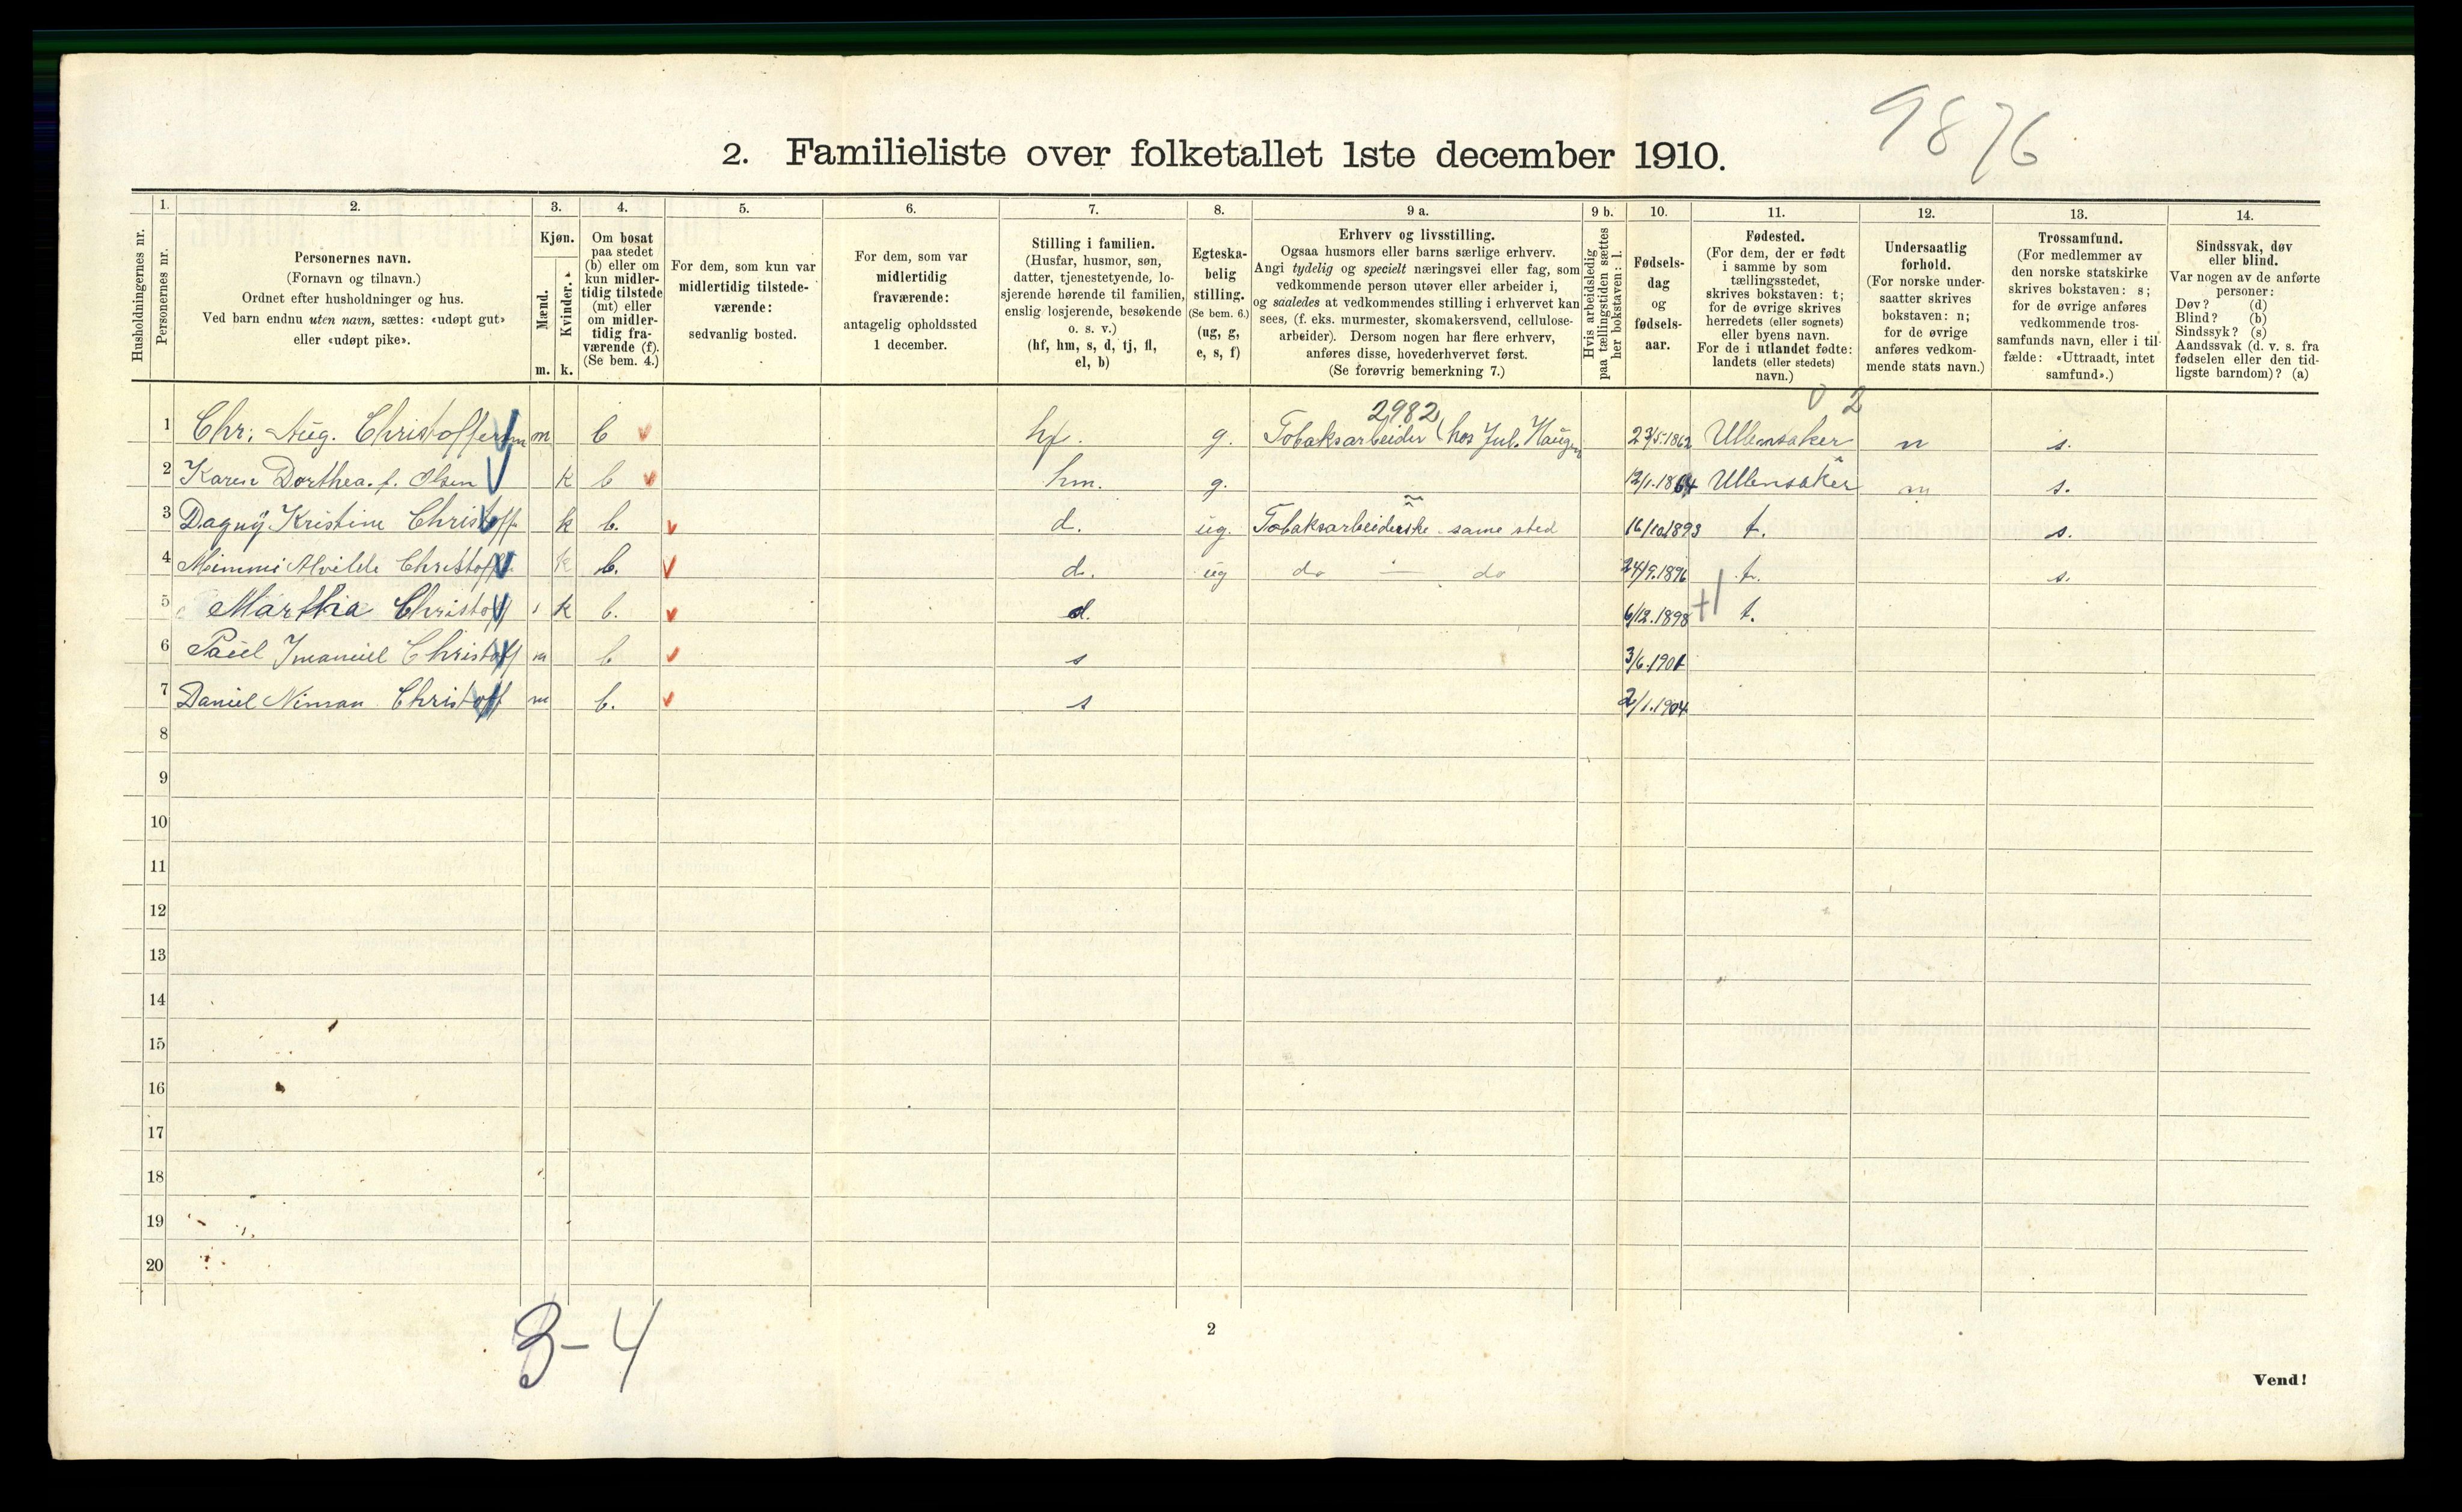 9876
2. Familieliste over folketallet 1ste december 1910.
Husholdningernes nr.
1.
Personernes nr.
2.
Personernes navn.
(Fornavn og tilnavn.)
Ordnet efter husholdninger og hus.
Ved barn endnu uten navn, sættes: «udøpt gut»
eller «udøpt pike».
3.
Kjøn.
Mænd.
Kvinder.
m. k.
4.
Om bosat
paa stedet
(b) eller om
kun midler-
tidig tilstede
(mt) eller
om midler-
tidig fra-
værende (f).
(Se bem. 4.)
5.
For dem, som kun var
midlertidig tilstede-
værende:
sedvanlig bosted.
6.
For dem, som var
midlertidig
fraværende:
antagelig opholdssted
1 december.
7.
Stilling i familien.
(Husfar, husmor, søn,
datter, tjenestetyende, lo-
sjerende hørende til familien,
enslig losjerende, besøkende
o. s. v.)
(hf, hm, s, d, tj, fl,
el, b)
8.
Egteska-
belig
stilling.
(Se bem. 6.)
(ug, g,
e, s, f)
9 a.
Erhverv og livsstilling.
Ogsaa husmors eller barns særlige erhverv.
Angi tydelig og specielt næringsvei eller fag, som
vedkommende person utøver eller arbeider i,
og saaledes at vedkommendes stilling i erhvervet kan
sees, (f. eks. murmester, skomakersvend, cellulose-
arbeider). Dersom nogen har flere erhverv,
anføres disse, hovederhvervet først.
(Se forøvrig bemerkning 7.)
9 b.
Hvis arbeidsledig
paa tællingstiden sættes
her bokstaven: l.
10.
Fødsels-
dag
og
fødsels-
aar.
11.
Fødested.
(For dem, der er født
i samme by som
tællingsstedet,
skrives bokstaven: t;
for de øvrige skrives
herredets (eller sognets)
eller byens navn.
For de i utlandet fødte:
landets (eller stedets)
navn.)
12.
Undersaatlig
forhold.
(For norske under-
saatter skrives
bokstaven: n;
for de øvrige
anføres vedkom-
mende stats navn.)
13.
Trossamfund.
(For medlemmer av
den norske statskirke
skrives bokstaven: s;
for de øvrige anføres
vedkommende tros-
samfunds navn, eller i til-
fælde: «Uttraadt, intet
samfund».)
14.
Sindssvak, døv
eller blind.
Var nogen av de anførte
personer:
Døv? (d)
Blind? (b)
Sindssyk? (s)
Aandssvak (d. v. s. fra
fødselen eller den tid-
ligste barndom)? (a)
2982 0 2
1 Chr: Aug. Christoffersen m b hf. g. Tobaksarbeider (hos Jul. Haugen 23/5.1862 Ullensaker n s.
2 Karen Dorthea. f. Olsen k b hm. g. 12/1.1864 Ullensaker n s.
3 Dagny Kristine Christoff k b. d. ug. Tobaksarbeiderske same sted 16/10.1893 t. s.
4 Mimmi Alvilde Christoff k b. d. ug do — do 24/9.1896 t. s.
5 Martha Christoff k b. d. 6/12.1898 t.
6 Paul Imanuel Christoff m b s 3/6.1901
7 Daniel Niman Christoff m b. s 2/1.1904
8
9
10
11
12
13
14
15
16
17
18
19
20
3-4
2
Vend!